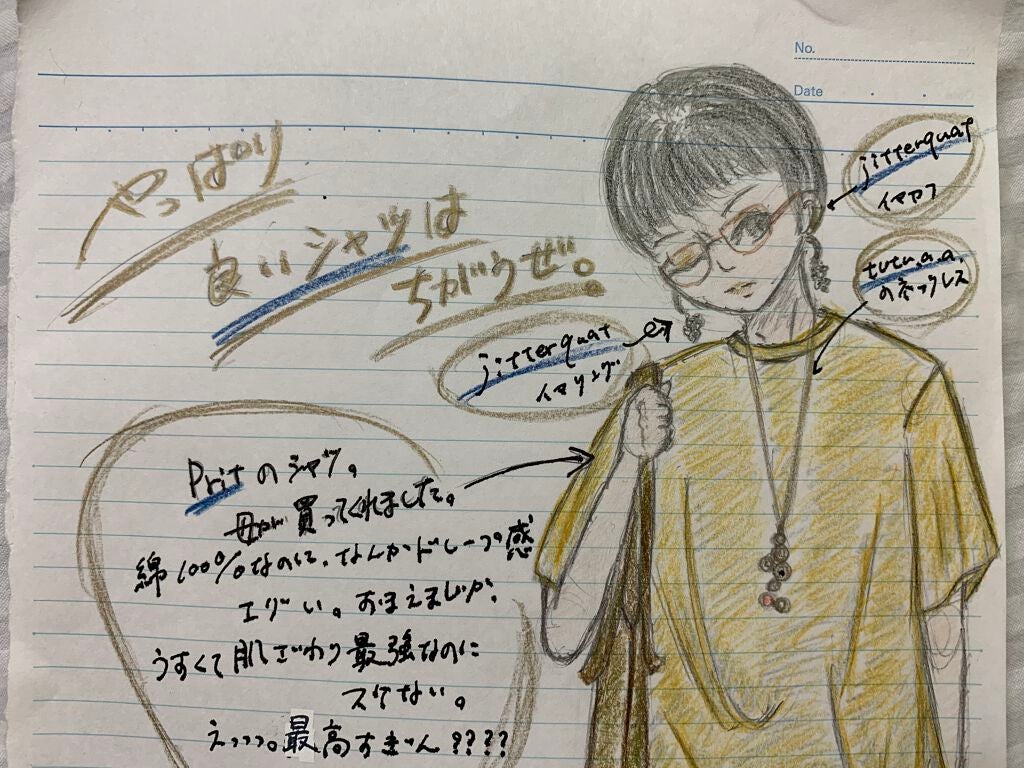 No.
Date
やっぱり
良いシャツは
ちがうぜ。
jitterquat
イヤカフ
tutu.a.a.
のネックレス
jitterquat
イヤリング
Pritのシャツ。
母が買ってくれました。
綿100%なのに、なんかドレープ感
エグい。おまえまじか。
うすくて肌ざわり最強なのに
スケない。
えっっっ。最高すぎん????